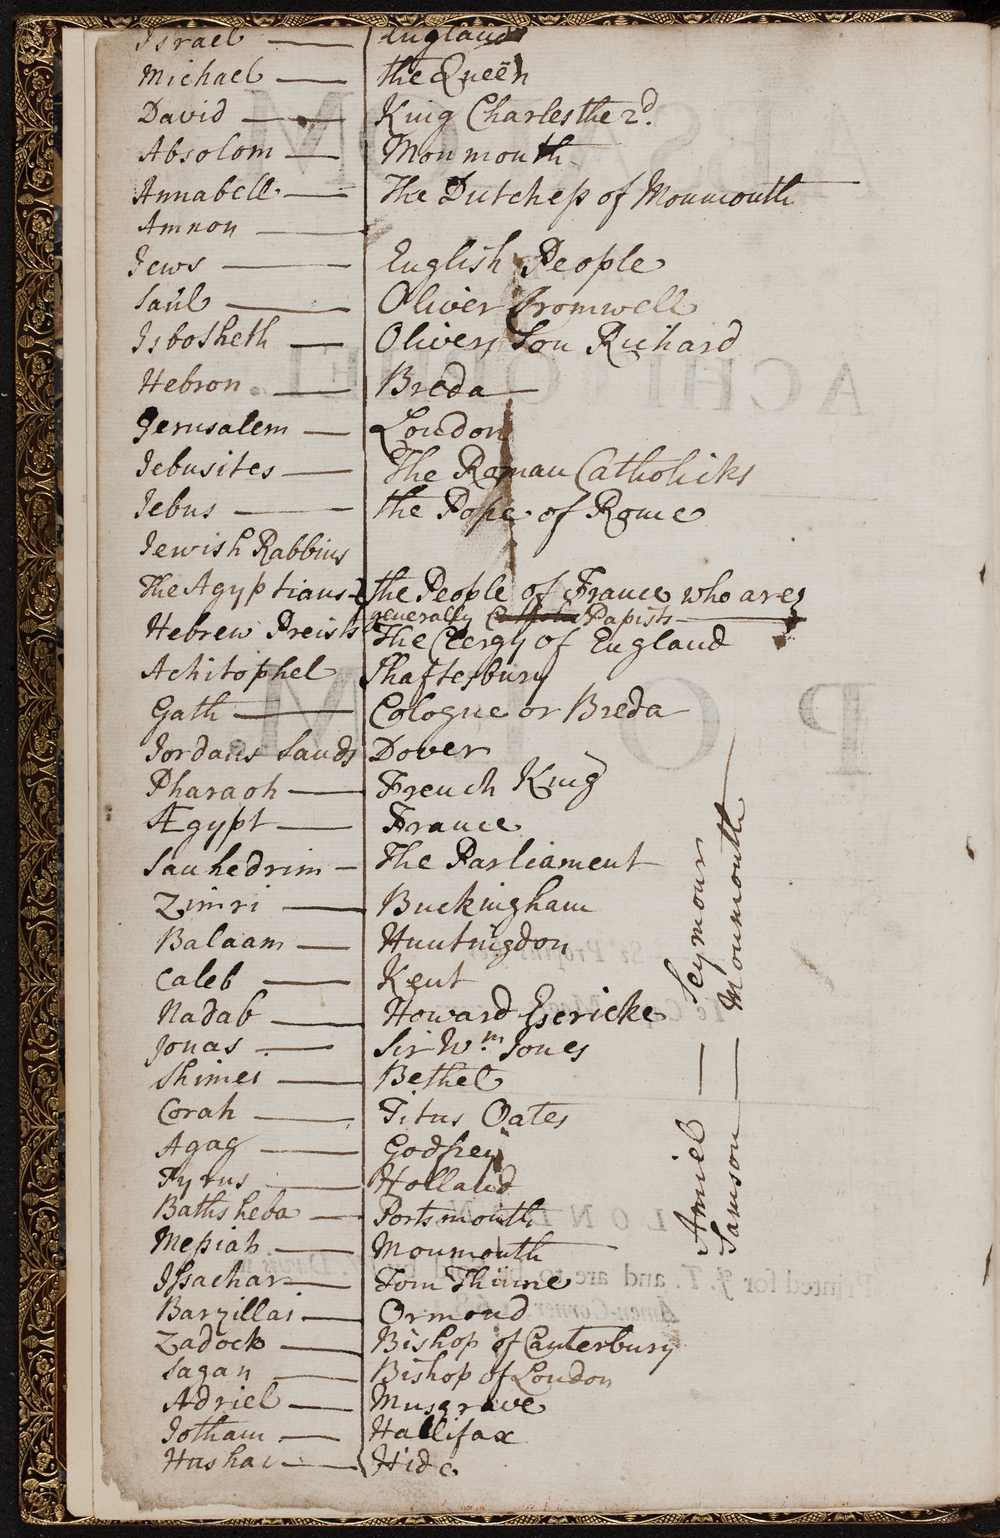 Israel — England
Michael — the Queen
David — King Charles the 2d.
Absolom — Monmouth
Annabell — The Dutchess of Monmouth
Amnon —
Jews — English People
Saul — Oliver Cromwell
Isbosheth — Olivers Son Richard
Hebron — Breda
Jerusalem — London
Jebusites — The Roman Catholicks
Jebus — the Pope of Rome
Jewish Rabbins
The Agyptians — the People of France who are
generally Papists
Hebrew Preists The Clergy of England
Achitophel Shaftesbury
Gath — Cologne or Breda
Jordans Sands Dover
Pharaoh — French King
Ægypt — France
Sanhedrim — The Parliament
Zimri — Buckingham
Balaam — Huntingdon
Caleb — Kent
Nadab — Howard Escricke
Jonas — Sir Wm. Jones
Shimei — Bethel
Corah — Titus Oates
Agag — Godfrey
Tyrus — Holland
Bathsheba — Portsmouth
Messiah — Monmouth
Issachar — Tom Thinne
Barzillai — Ormond
Zadock — Bishop of Canterbury
Sagan — Bishop of London
Adriel — Musgrave
Jotham — Hallifax
Hushai — Hide
Amiel — Seymour
Samson — Monmouth